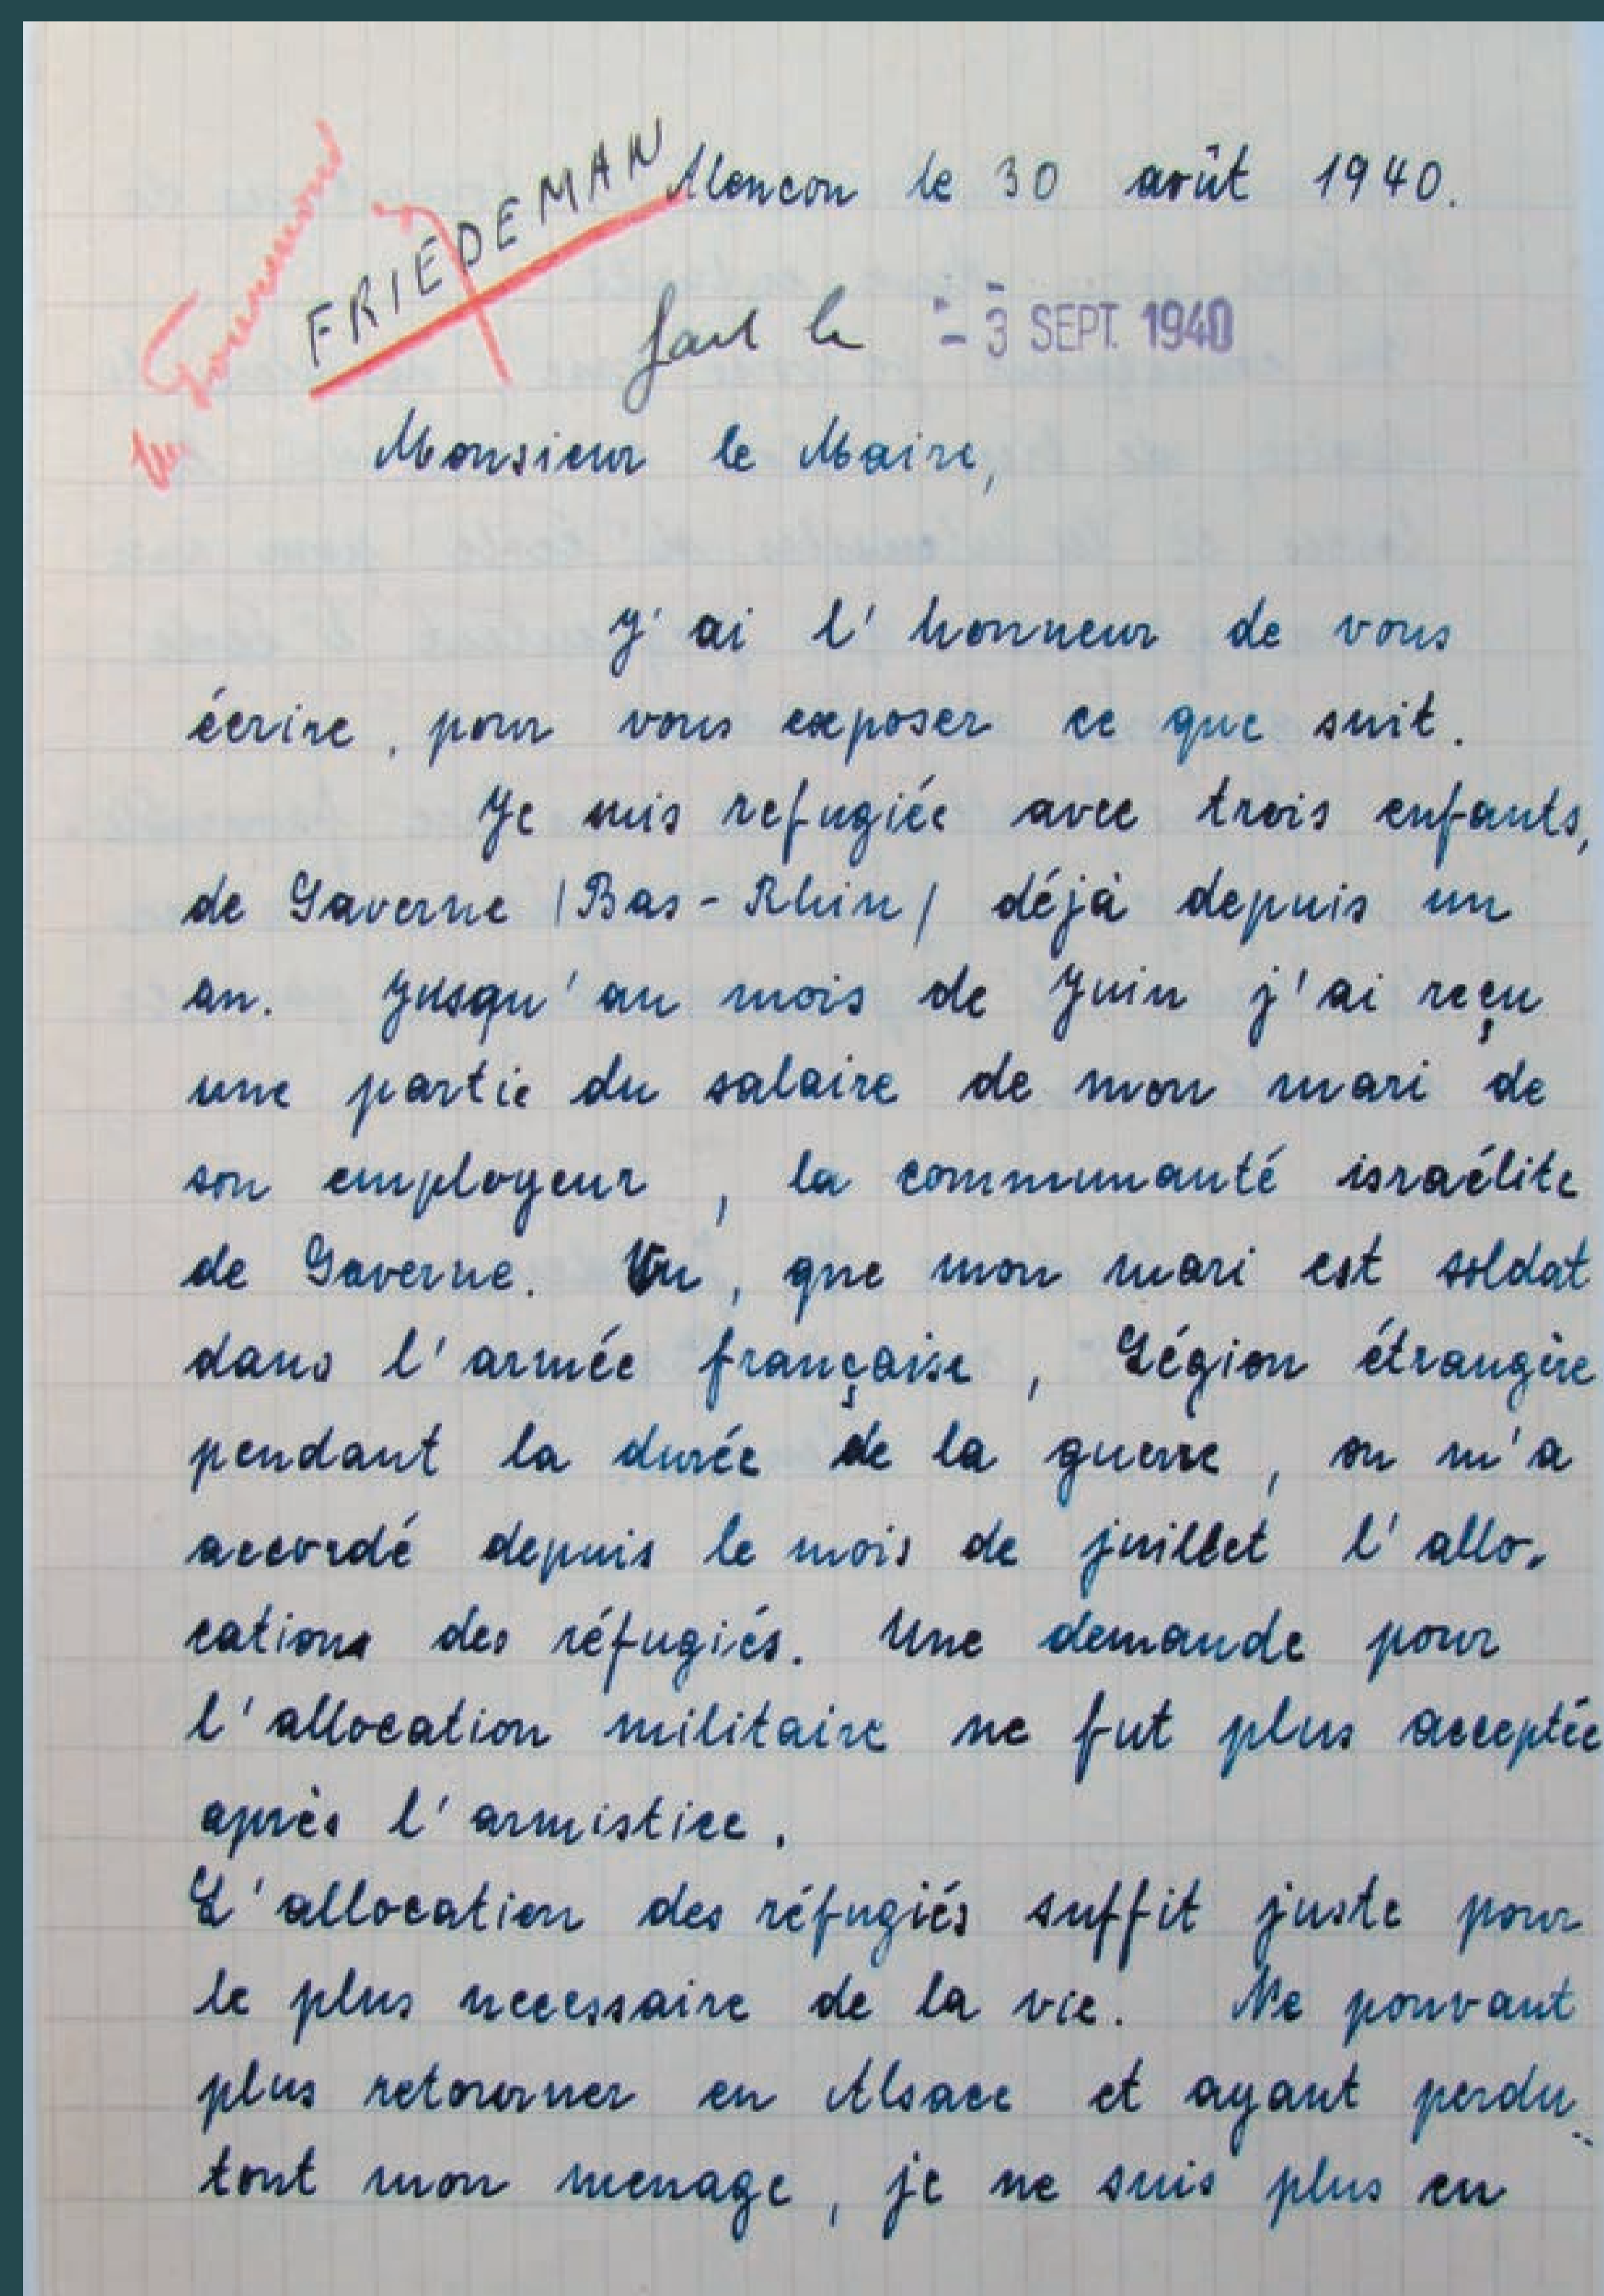 FRIEDEMAN
Alencon le 30 août 1940.
fait le - 3 SEPT. 1940
Monsieur le Maire,
J'ai l'honneur de vous
écrire, pour vous exposer ce que suit.
Je suis refugiée avec trois enfants,
de Saverne (Bas-Rhin) déjà depuis un
an. Jusqu'au mois de Juin j'ai reçu
une partie du salaire de mon mari de
son employeur, la communauté israélite
de Saverne. Vu, que mon mari est soldat
dans l'armée française, Légion étrangère
pendant la durée de la guerre, on m'a
accordé depuis le mois de juillet l'allo-
cations des réfugiés. Une demande pour
l'allocation militaire ne fut plus acceptée
après l'armistice.
L'allocation des réfugiés suffit juste pour
le plus necessaire de la vie. Ne pouvant
plus retourner en Alsace et ayant perdu
tout mon menage, je ne suis plus en